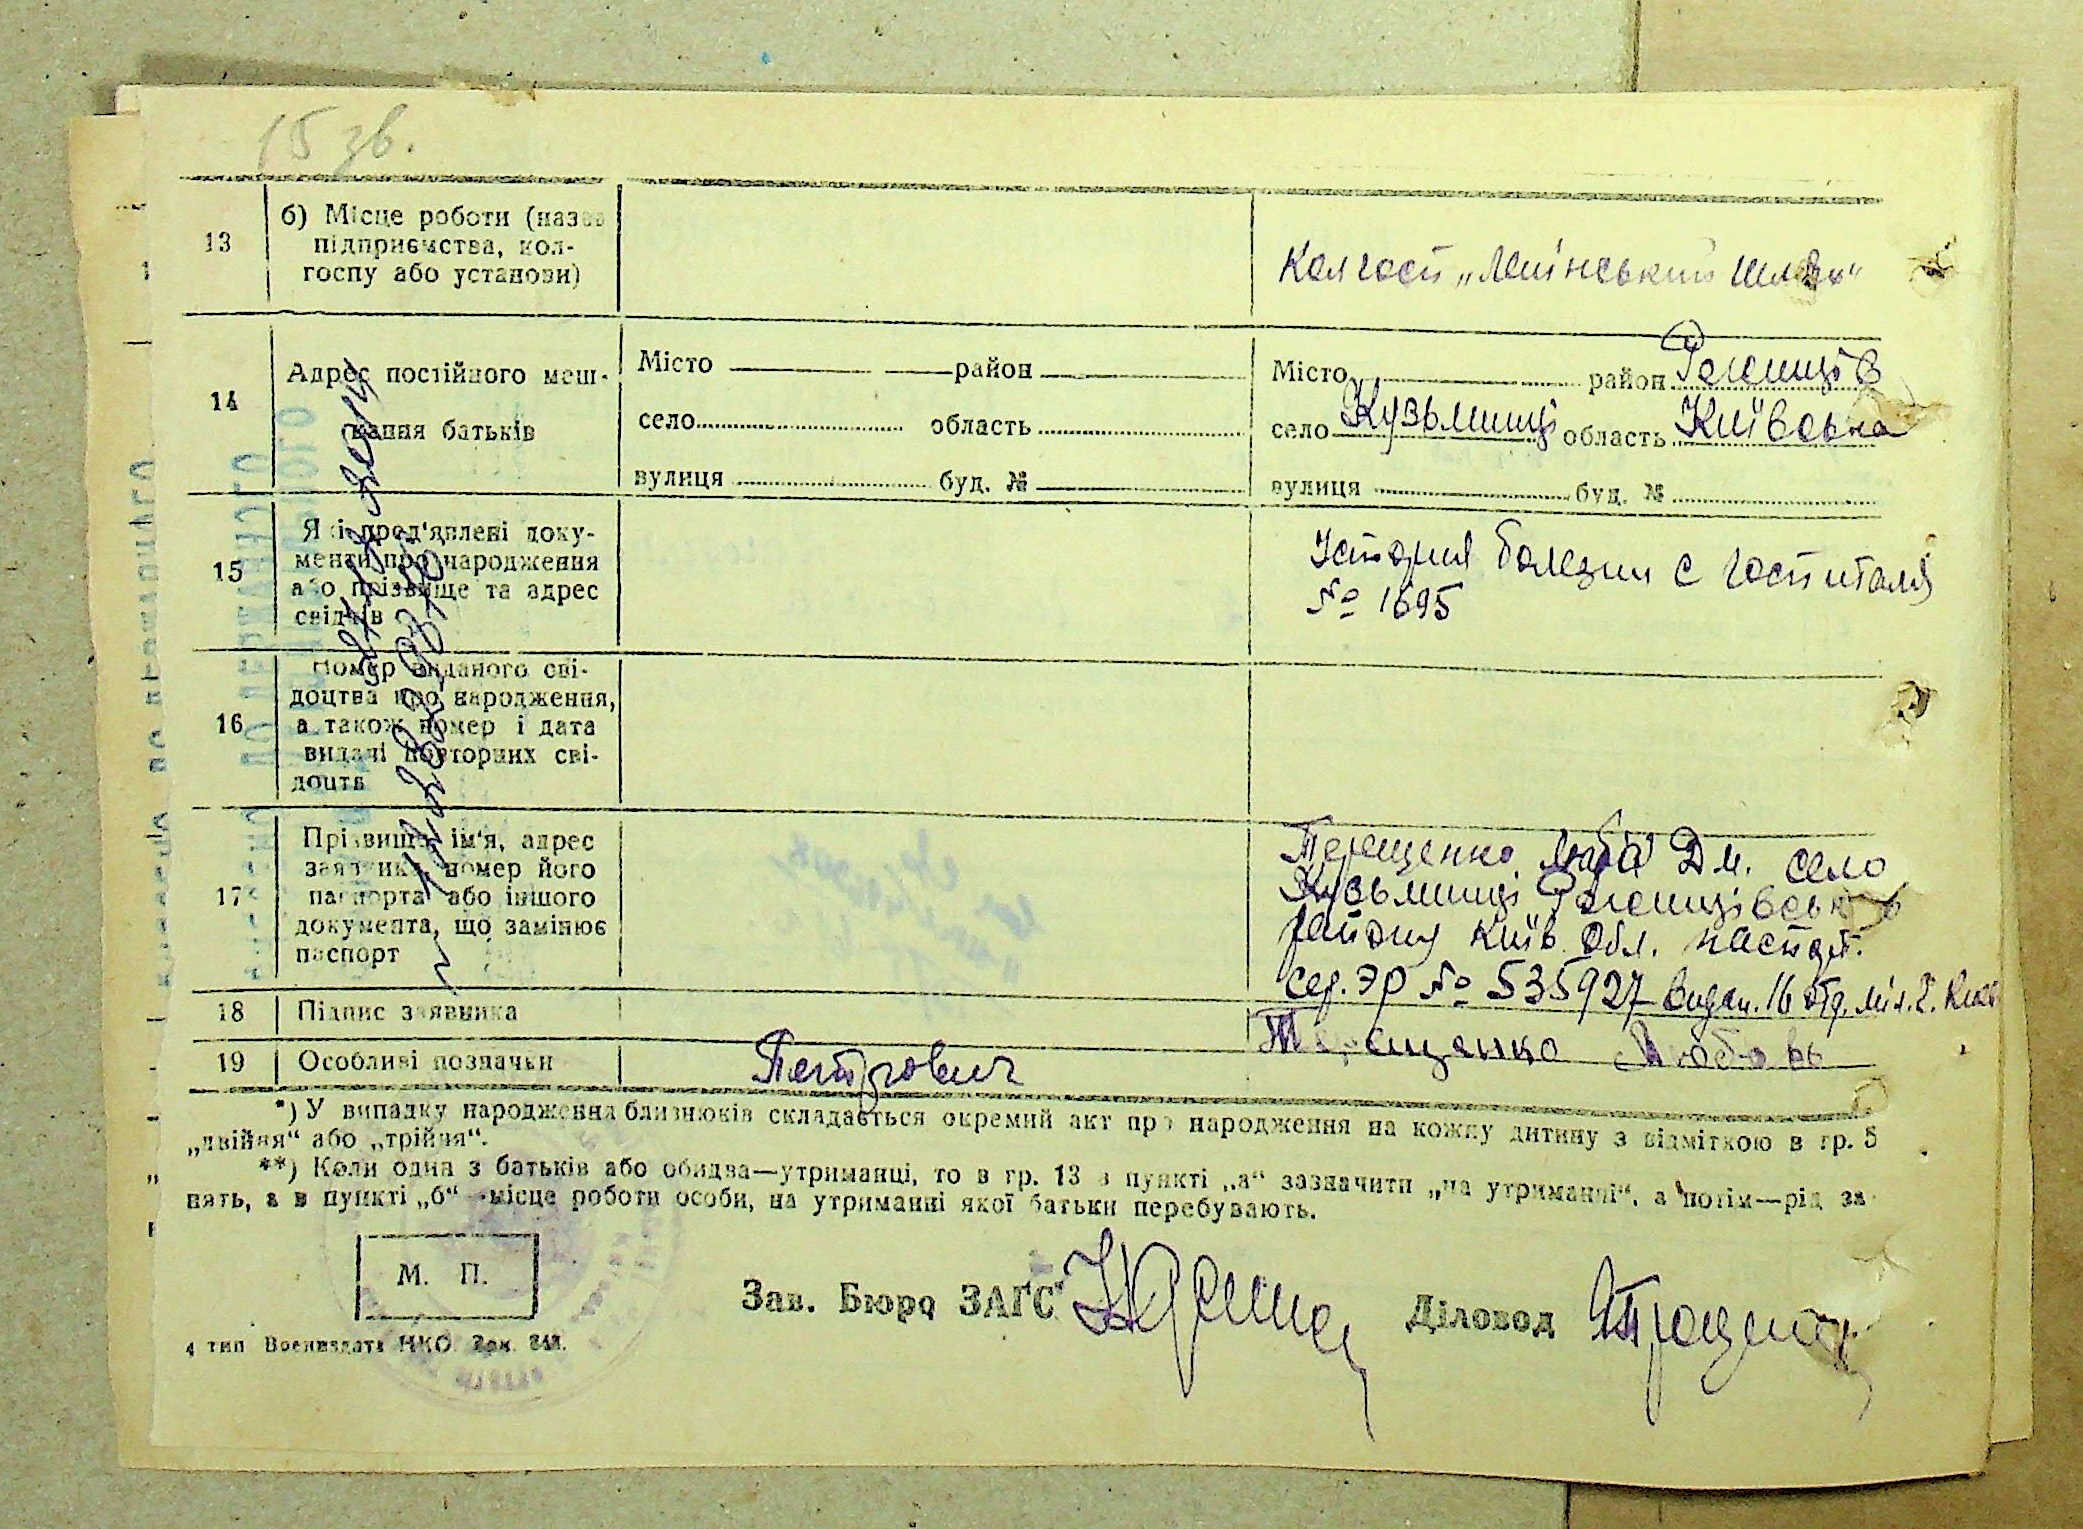 15 зв.
13
б) Місце роботи (назва
підприємства, кол-
госпу або установи)
Колгосп „Ленінський шлях“
14
Адрес постійного меш-
кання батьків
Місто район
село область
вулиця буд. №
Місто район
село Кузьминці область Київська
вулиця буд. №
15
Які пред'явлені доку-
менти про народження
або прізвище та адрес
свідків
История болезни с госпиталя
№ 1695
16
Номер виданого сві-
доцтва про народження,
а також номер і дата
видачі повторних сві-
доцтв
17
Прізвище, ім'я, адрес
заявника, номер його
паспорта або іншого
документа, що замінює
паспорт
Терещенко Люба Дм. село
Кузьминці
району Київ. обл. паспорт.
сер. ЭР № 535927 видан. 16 отд. міл. г. Київ
18
Підпис заявника
Терещенко Любовь
19
Особливі позначки
Петрович
*) У випадку народження близнюків складається окремий акт про народження на кожну дитину з відміткою в гр. 5
„двійня“ або „трійня“.
**) Коли один з батьків або обидва—утриманці, то в гр. 13 в пункті „а“ зазначити „на утриманні“, а потім—рід за-
нять, а в пункті „б“ —місце роботи особи, на утриманні якої батьки перебувають.
М. П.
Зав. Бюро ЗАГС
Діловод
4 тип Воениздата НКО. Зак.